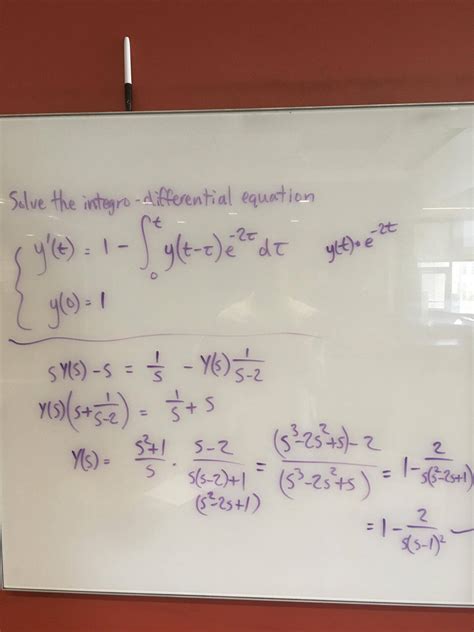 Solve the integro-differential equation
y'(t) = 1 - ∫₀ᵗ y(t-τ)e^{-2τ} dτ    y(t)∘e^{-2t}
y(0) = 1
sY(s) - s = 1/s - Y(s) 1/(s-2)
Y(s)(s + 1/(s-2)) = 1/s + s
Y(s) = (s²+1)/s · (s-2)/(s(s-2)+1) = ((s³-2s²+s)-2)/(s³-2s²+s) = 1 - 2/(s(s²-2s+1))
(s²-2s+1)
= 1 - 2/(s(s-1)²)